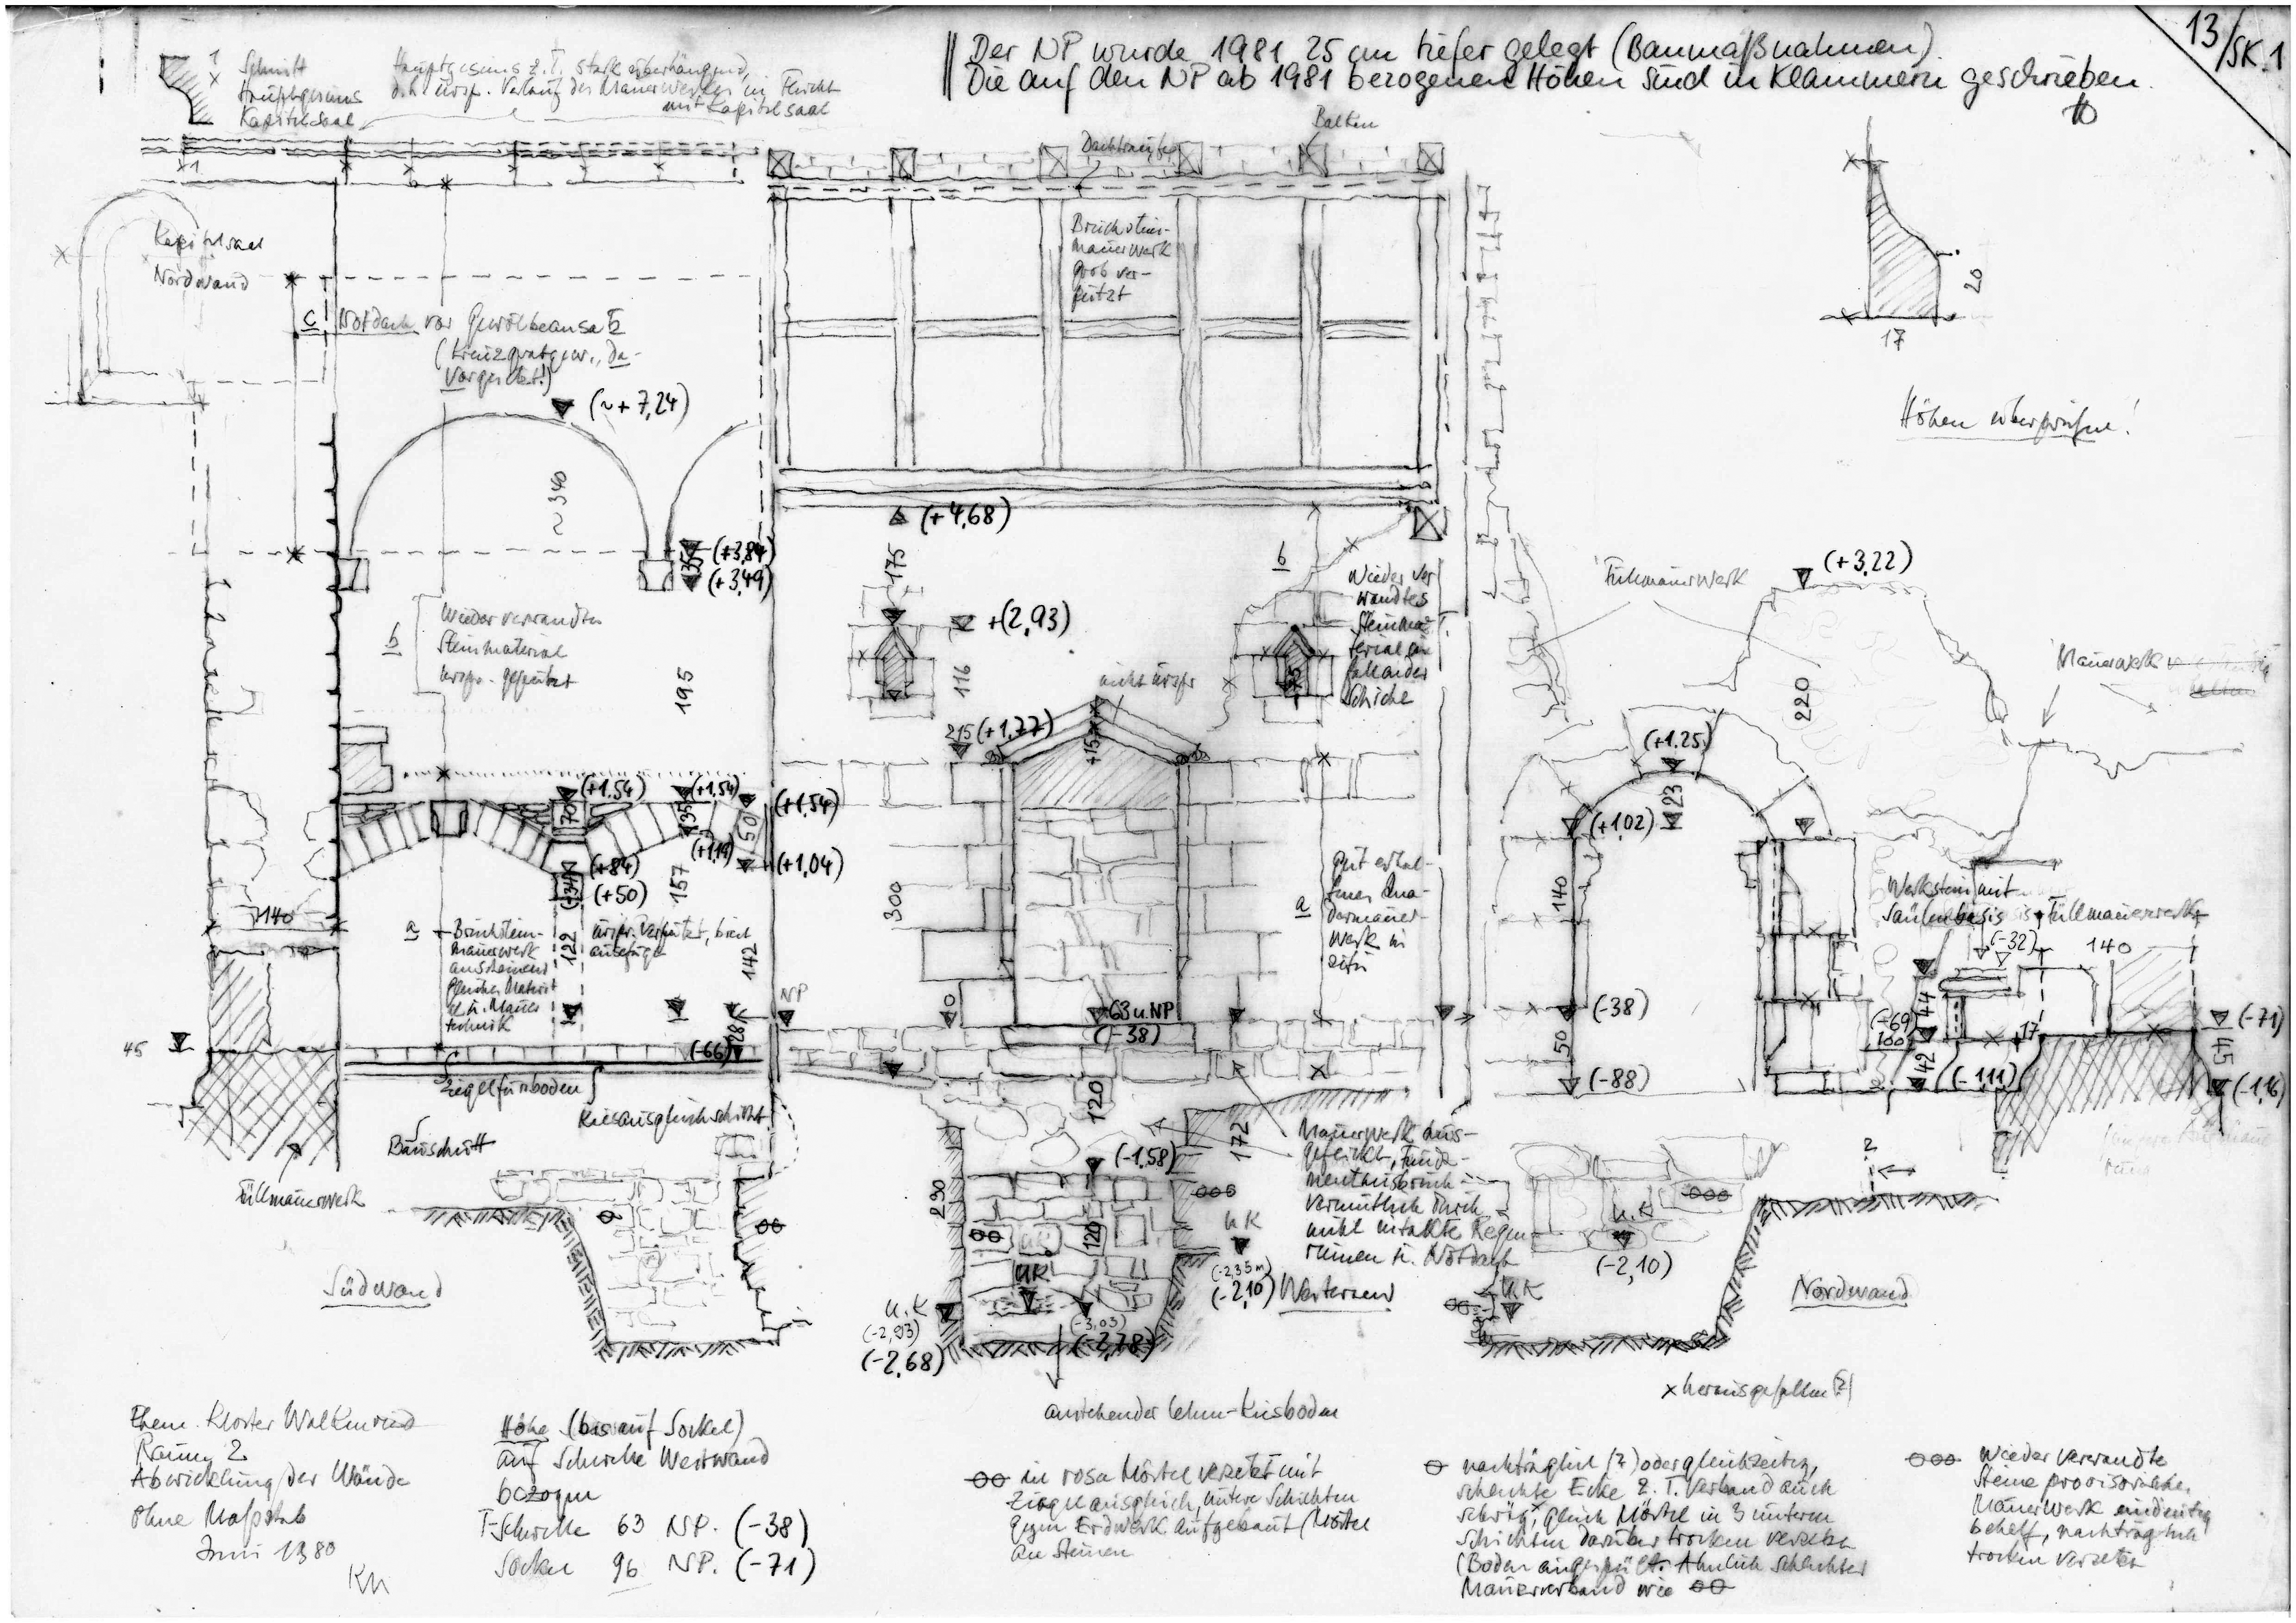 13/SK.1
Der NP wurde 1981 25 cm tiefer gelegt (Baumaßnahmen).
Die auf den NP ab 1981 bezogenen Höhen sind in Klammern geschrieben.
1
Schnitt
Hauptgesims
Kapitelsaal
Hauptgesims z.T. stark überhängend,
d.h. urspr. Verlauf des Mauerwerkes in Flucht
mit Kapitelsaal
Balken
Dachtraufe
1
Kapitelsaal
Nordwand
Bruchstein-
mauerwerk
grob ver-
putzt
20
17
Höhen überprüfen!
c Notdach vor Gewölbeansatz
(Kreuzgratgew., da-
vorgesetzt!)
(~+7,24)
~340
(+4,68)
(+3,84)
35
(+3,49)
175
b
Wieder ver
wandtes
Steinma-
terial
Schicht
Füllmauerwerk
(+3,22)
+(2,93)
b
Wiederverwandtes
Steinmaterial
urspr. geputzt
195
116
nicht urspr
Mauerwerk
220
215 (+1,77)
+15
(+1.25)
23
(+1.54)
(+1.54)
(+1,54)
70
35
50
(+1,19)
(+1,04)
(+84)
34
(+50)
157
(+1,02)
140
300
a
Gut erhal-
tenes Qua-
dermauer-
werk in
situ
Werkstein mit
Säulenbasis
Füllmauerwerk
(-32)
140
140
a
Bruchstein-
mauerwerk
anscheinend
gleiches Material
u. Mauer
technik
urspr. verputzt, breit
ausgefugt
122
142
NP
28
(-66)
0
63 u. NP
(-38)
(-38)
50
(-88)
(-69)
100
44
42
17
(-111)
(-71)
45
(-1,16)
45
Ziegelfußboden
Kiesausgleichschicht
Bauschutt
Füllmauerwerk
120
172
Mauerwerk aus-
geflickt, Funda-
mentausbruch
vermutlich durch
nicht intakte Regen-
rinnen u. Notdach
(-1,58)
230
120
UK
UK
(-2,35m)
(-2,10)
Westwand
UK
(-2,93)
(-2,68)
(-3,03)
(-2,78)
U.K
(-2,10)
U.K
2
Südwand
Nordwand
x herausgefallen (?)
anstehender Lehm-Kiesboden
Ehem. Kloster Walkenried
Raum 2
Abwicklung der Wände
Ohne Maßstab
Juni 1980
KN
Höhe (bis auf Sockel)
auf Schwelle Westwand
bezogen
T-Schwelle 63 NP. (-38)
Sockel 96 NP. (-71)
in rosa Mörtel versetzt mit
Ziegelausgleich, untere Schichten
gegen Erdwerk aufgebaut (Mörtel
an Steinen
nachträglich (?) oder gleichzeitig,
schlechte Ecke z.T. Verband auch
schräg, gleich Mörtel in 3 unteren
Schichten darüber trocken versetzt
(Boden angespült. Ähnlich schlechter
Mauerverband wie
Wiederverwandte
Steine provisorisches
Mauerwerk eindeutig
behelf, nachträglich
trocken versetzt